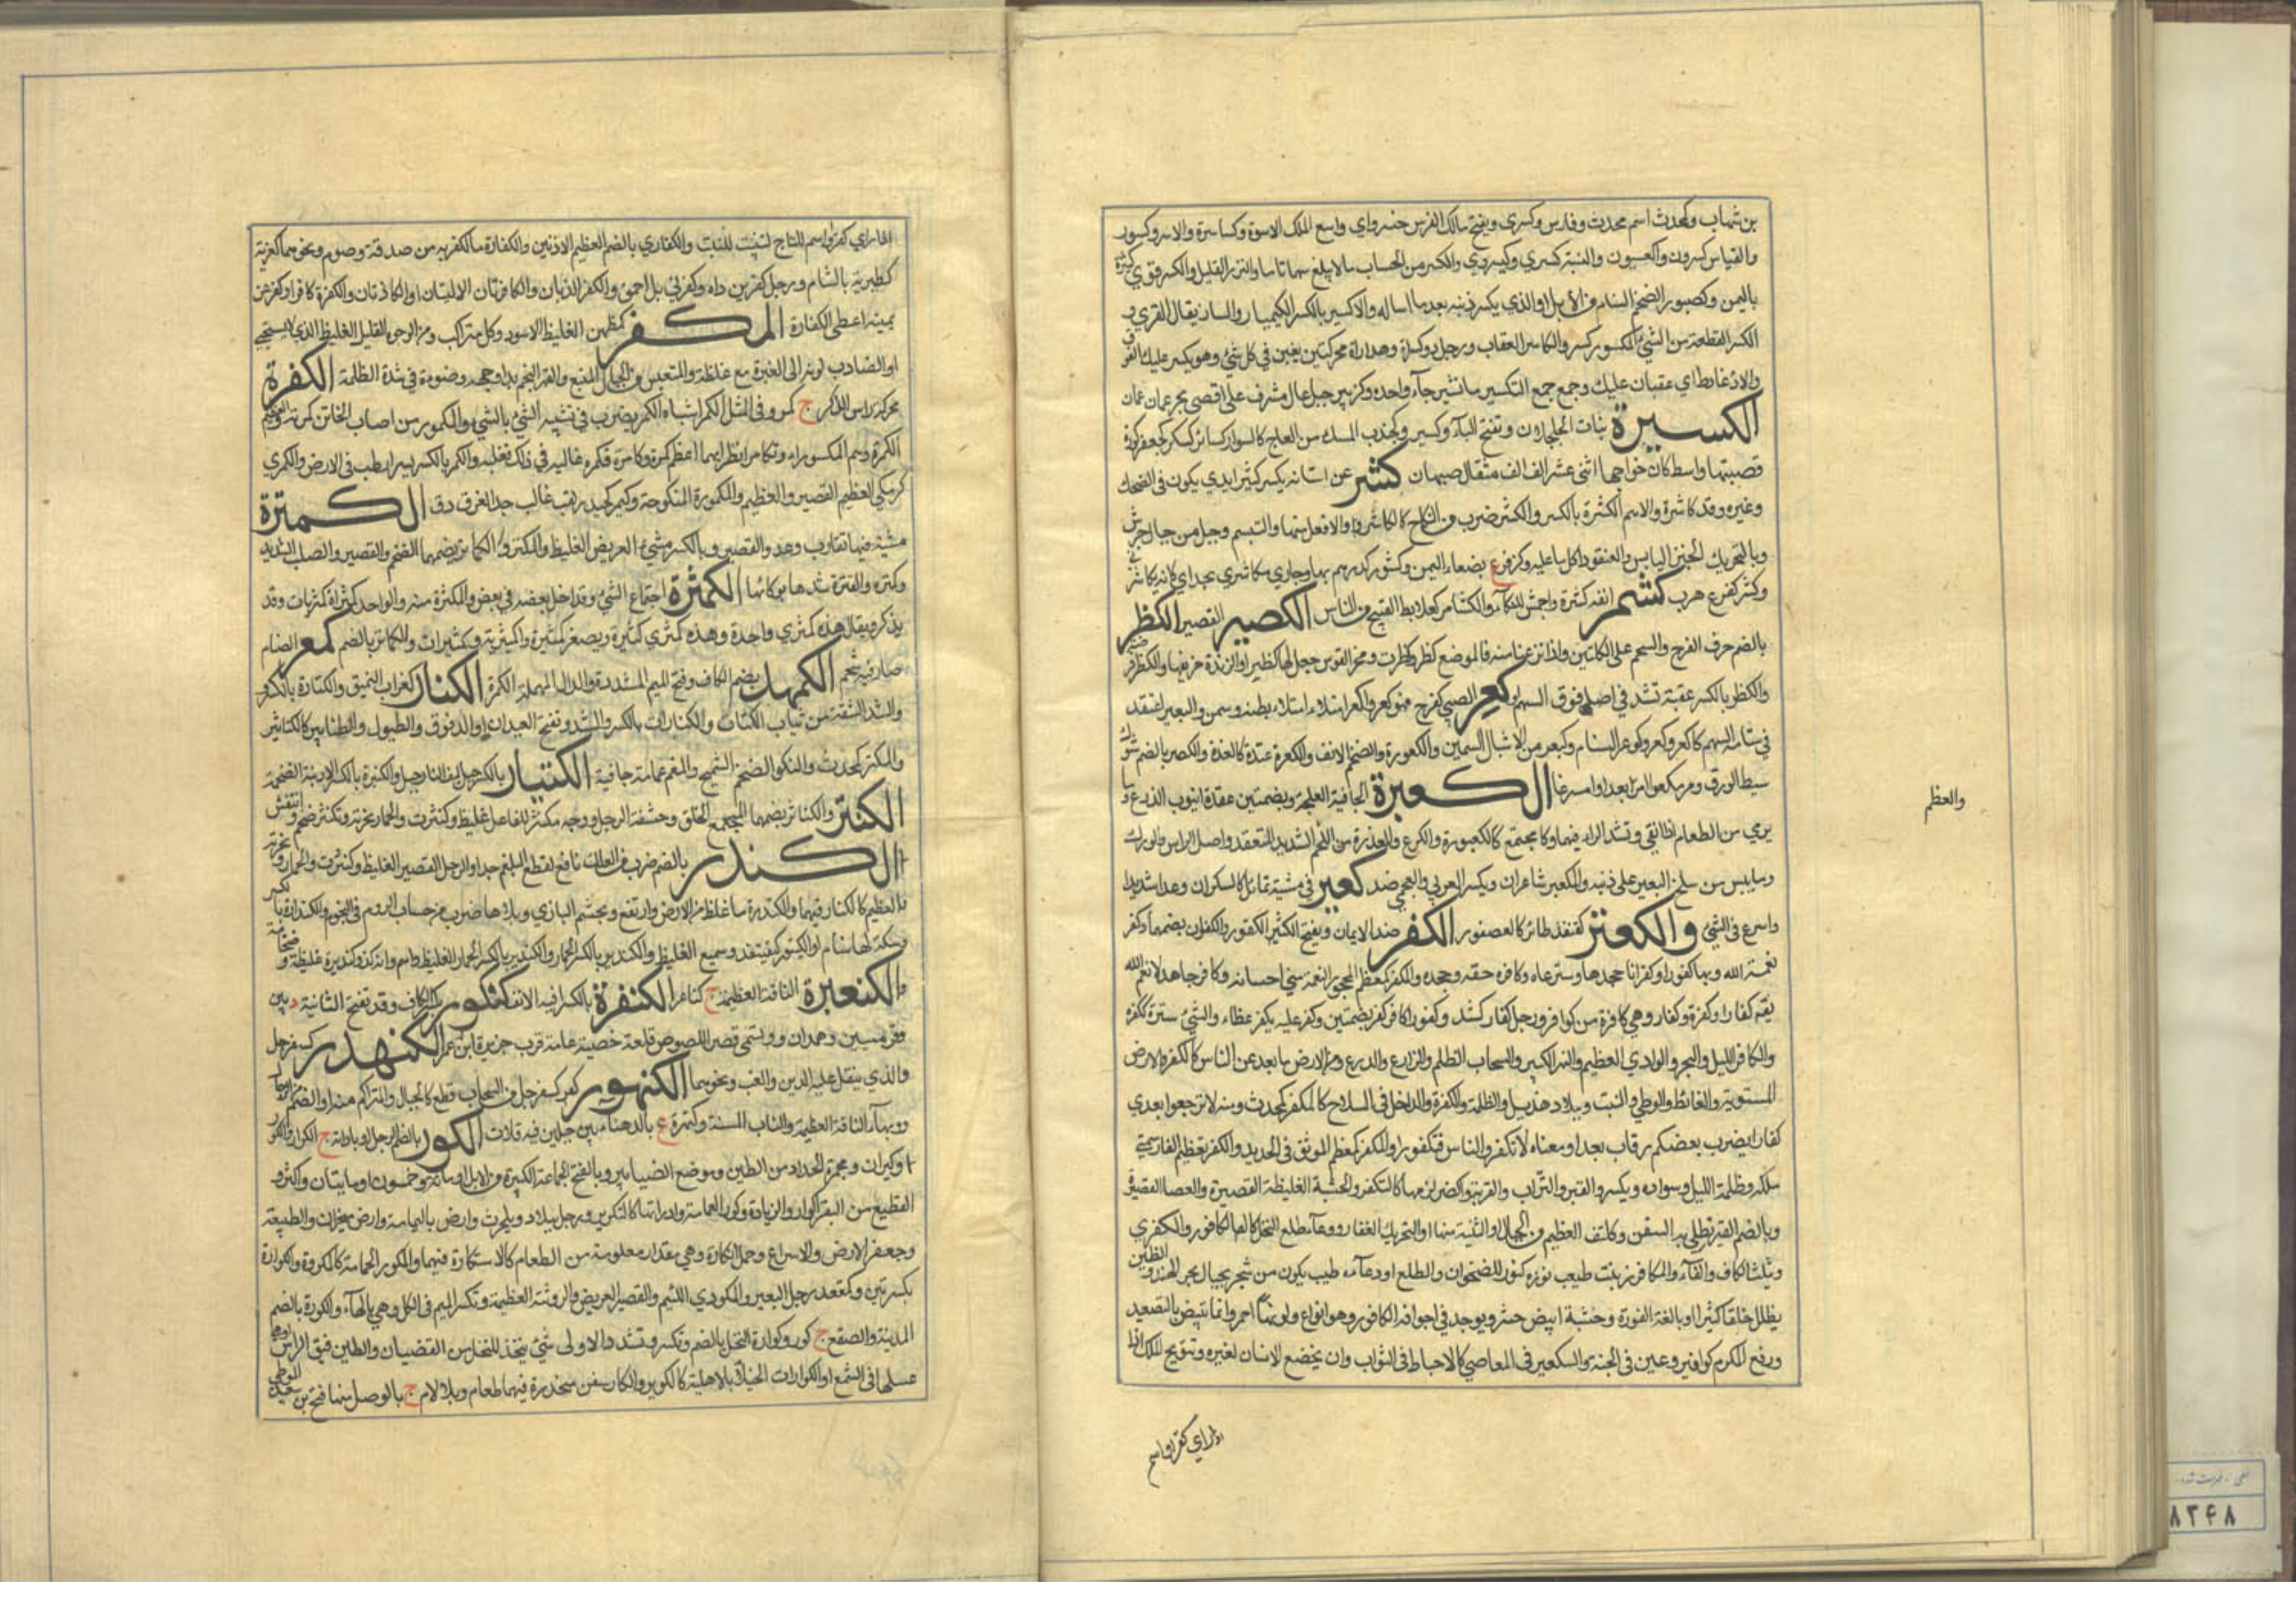 بن شهاب وكمحدث اسم محدث وفارس وكسرى ويفتح مالك الفرس خسرو اي واسع الملك الاسوة وكساسرة والاسر وكسور
والقياس كسرون والعيسون والنسبة كسري وكسروي والكسر من الحساب مالا يبلغ سهما تاما والنزر القليل والكسر قرى كثيرة
باليمن وكصبور الضخم السنام من الابل او الذي يكسر ذنبه بعد ما اساله والاكسير بالكسر الكيمياء
الكسر القطعة من الشئ المكسور كسر والكاسر العقاب ورجل ذو كسرة وهدارة محركتين يغبن في كل شئ وهو يكسر عليك الفوق
والارعاظ اي غضبان عليك وجمع جمع التكسير ما تغير بناء واحده وكزبير جبل عال مشرف على اقصى بحر عمان
الكسبرة نبات الجلجلان وتفتح البآء وكسبر وكجندب المسك من العاج كالسوار كسابر كسكر كجعفر كورة
قصبتها واسط كان خراجها اثنى عشر الف الف مثقال كاصبهان كشر عن اسنانه يكسر كشرا ابدى يكون في الضحك
وغيره وقد كاشره والاسم الكشرة بالكسر والكشر ضرب من النكاح كالكاشر ولا فعل منهما والتبسم وجبل من جبال جرش
وبالتحريك الخبز اليابس والعنقود اكل ما عليه وكزفر ع بصنعاء اليمن وكشور كدرهم بها وجاري مكاشري بحذاي كانه يكاشرني
وكشر كفرح هرب كشمر انفه كسره واجهش للبكآء والكشامر كعلابط القبيح من الناس الكصير القصير الكظر
بالضم حرف الفرج والشحم على الكليتين واذا نزعتا منه فالموضع كظر وكظرة ومحز القوس جعل لها كظرا والزندة حز فيها
والكظر بالكسر عقبة تشد في اصل فوق السهم كعر الصبي كفرح فهو كعر واكعر امتلا بطنه وسمن والبعير اعتقد
في سنامه الشحم كاكعر وكعر وكوعر السنام وكيعر من الاشبال السمين والكعورة والضخم الانف والكعرة عقدة كالغدة والكعر بالضم شوك
سبط الورق ومر مكعرا مر يعدو مسرعا الكعبرة الجافية العلجة وبضمتين عقدة انبوب الزرع وما
يرمى من الطعام اذا نقي وتشد الرآء فيهما وكل مجتمع كالكعبورة والكوع والفدرة من اللحم الشديد المتعقد واصل الراس والورك
وما يبس من سلح البعير على ذنبه والمكعبر شاعران ويكسر العربي والعجمي ضد كعتر في مشيه تمايل كالسكران وعدا شديدا
واسرع في الشئ والكعتر كقنفذ طائر كالعصفور الكفر ضد الايمان ويفتح الكثير الكفور والكفران بضمهما وكفر
نعمة الله وبها كفورا وكفرانا جحدها وسترها وكافره حقه جحده والمكفر كمعظم المجحود النعمة مع احسانه وكافر جاحد لانعم الله
كفار وكفرة وكفار وهي كافرة من كوافر ورجل كفار كشداد وكفور كافر كفر بضمتين وكفر عليه يكفر غطاه والشئ ستره ككفره
والكافر الليل والبحر والوادي العظيم والنهر الكبير والسحاب المظلم والزارع والدرع ومن الارض ما بعد عن الناس كالكفرة والارض
المستوية والغائط والوطئ والنبت وبلاد هذيل والظلمة والكفرة والداخل في السلاح كالمكفر كمحدث ومنه لا ترجعوا بعدي
كفارا يضرب بعضكم رقاب بعض او معناه لا تكفروا الناس فتكفروا والمكفر كمعظم الموثق في الحديد والكفر تعظيم الفارسي
ملكه وظلمة الليل وسواده ويكسر والقبر والتراب والقرية واكفر لزمها كاكتفر والخشبة الغليظة القصيرة والعصا القصيرة
وبالضم القير تطلى به السفن وككتف العظيم من الجبال او الثنية منها وبالتحريك العقاب ووعاء طلع النخل كالكافور والكفرى
وتثلث الكاف والفآء والكافور نبت طيب نوره كنور الاقحوان والطلع او وعآءه وطيب يكون من شجر بجبال بحر الهند والصين
يظلل خلقا كثيرا وتالفه النمورة وخشبه ابيض هش ويوجد في اجوافه الكافور وهو انواع ولونها احمر وانما تبيض بالتصعيد
وزمع الكرم كوافير وعين في الجنة والتكفير في المعاصي كالاحباط في الثواب وان يخضع الانسان لغيره وتتويج الملك اذا
والعظم
اذا راي كفر واسم
اذا راي كفر واسم للتاج كتنبيت للنبت والكفاري بالضم العظيم الاذنين والكفارة ما كفر به من صدقة وصوم ونحوهما كفرية
كطبرية بالشام ورجل كفرين داه وكفرنى بل احمق والكفر الذهاب والكافرتان الاليتان او الكاذتان والكفرة كافرا وكفر عن
يمينه اعطى الكفارة المكفهر كمطمئن الغليظ الاسود وكل متراكب ومن الوجوه القليل الغليظ الذي لا يستحي
او الضارب لونه الى الغبرة مع غلظة والمتعبس ومن الجبال المنيع واكفهر النجم بدا وجهه وضوءه في شدة الظلمة الكمرة
محركة راس الذكر ج كمر وفي المثل الكمر اشباه الكمر يضرب في تشبيه الشئ بالشئ والمكمور من اصاب الخاتن كمرته والعظيم
الكمرة وهم المكموراء وتكامرا نظرا ايهما اعظم كمرة وكامره فكمره غالبه في ذلك فغلبه والكمر بالكسر بسر ارطب في الارض والكمرى
كزمكى العظيم القصير والعظيم والمكمورة المنكوحة وكمير كحيدر لقب غالب جد الفرزدق الكمترة
مشية فيها تقارب وعدو القصير وبالكسر مشئ العريض الغليظ والكمتر والكماتر بضمهما الضخم والقصير والصلب الشديد
وكمتره والقربة شدها بوكائها الكمثرة اجتماع الشئ وتداخل بعضه في بعض والكمثرة منه والواحد كمثراة كمثريات وقد
يذكر ويقال هذه كمثرى واحدة وهذه كمثرى كثيرة ويصغر كميثرة وكميثرية وكميثرات والكماثر بالضم كمعر السنام
صار فيه شحم الكمهدر بضم الكاف وفتح الميم المشددة والدال المهملة الكمرة الكنار كغراب النبق والكنارة بالكسر
والشد الشقة من ثياب الكتان والكنارات بالكسر والشد وتفتح العيدان او الدفوف والطبول والطنابير كالكنانير
والمكنر كمحدث والمكنور الضخم السمج والمعتم عمامة جافية الكنبار بالكسر حبل ليف النارجيل والكنبرة بالكسر الارنبة الضخمة
الكنثر والكناثر بضمهما المجتمع الخلق وحشفة الرجل ووجه مكنثر للفاعل غليظ وكنثرة الحمار نخرته وتكنثر ضخم وانتفش
الكندر بالضم ضرب من العلك نافع لقطع البلغم جدا والرجل القصير الغليظ
العظيم كالكنادر فيهما والكندرة ما غلظ من الارض وارتفع ومجثم البازي وبلا هآء ضرب من حساب الروم في النجوم والكندارة بالكسر
وسمكة لها سنام والكنيدر كقنيفذ وسميع الغليظ والكندير بالكسر الحمار الغليظ واسم وانه لذو كنديرة غليظة وضخامة
والكنعرة الناقة العظيمة ج كناعر الكنفيرة بالكسر ارنبة الانف كنكور بكسر الكاف وقد تفتح الثانية د بين
وقرميسين وهمدان ويسمى قصر اللصوص قلعة حصينة عامرة قرب جزيرة ابن عمر الكنهدر كسفرجل
والذي ينقل عليه اللبن والعنب ونحوهما الكنهور كسفرجل من السحاب قطع كالجبال والمتراكم منه والضخم من الرجال
وبهآء الناقة العظيمة والناب المسنة وكنهرة ع بالدهناء بين جبلين فيه قلات الكور بالضم الرحل او باداته ج اكوار واكور
وكيران ومجمرة الحداد من الطين وموضع الزنابير وبالفتح الجماعة الكثيرة من الابل او مائة وخمسون او مايتان واكثر و
القطيع من البقر اكوار والزيادة وكور العمامة وادارتها كالتكوير وجبل ببلاد وبلحرث وارض باليمامة وارض بنجران والطبيعة
وحفر الارض والاسراع وحمل الكارة وهي مقدار معلوم من الطعام كالاستكارة فيهما والمكور العمامة كالمكورة والكوارة
بكسرتين وكمقعد رحل البعير والمكورى اللئيم والقصير العريض والروثة العظيمة وتكسر الميم في الكل وهي بالهآء والكورة بالضم
المدينة والصقع ج كور وكوارة النحل بالضم وتكسر وتشدد الاولى شئ يتخذ للنحل من القضبان والطين ضيق الراس
عسلها في الشمع او الكوارات الخلايا الاهلية كالكوائر والكار سفن منحدرة فيها طعام وبلا لام ج بالموصل منها فتح بن سعيد الموصلي
٨٢٤٨